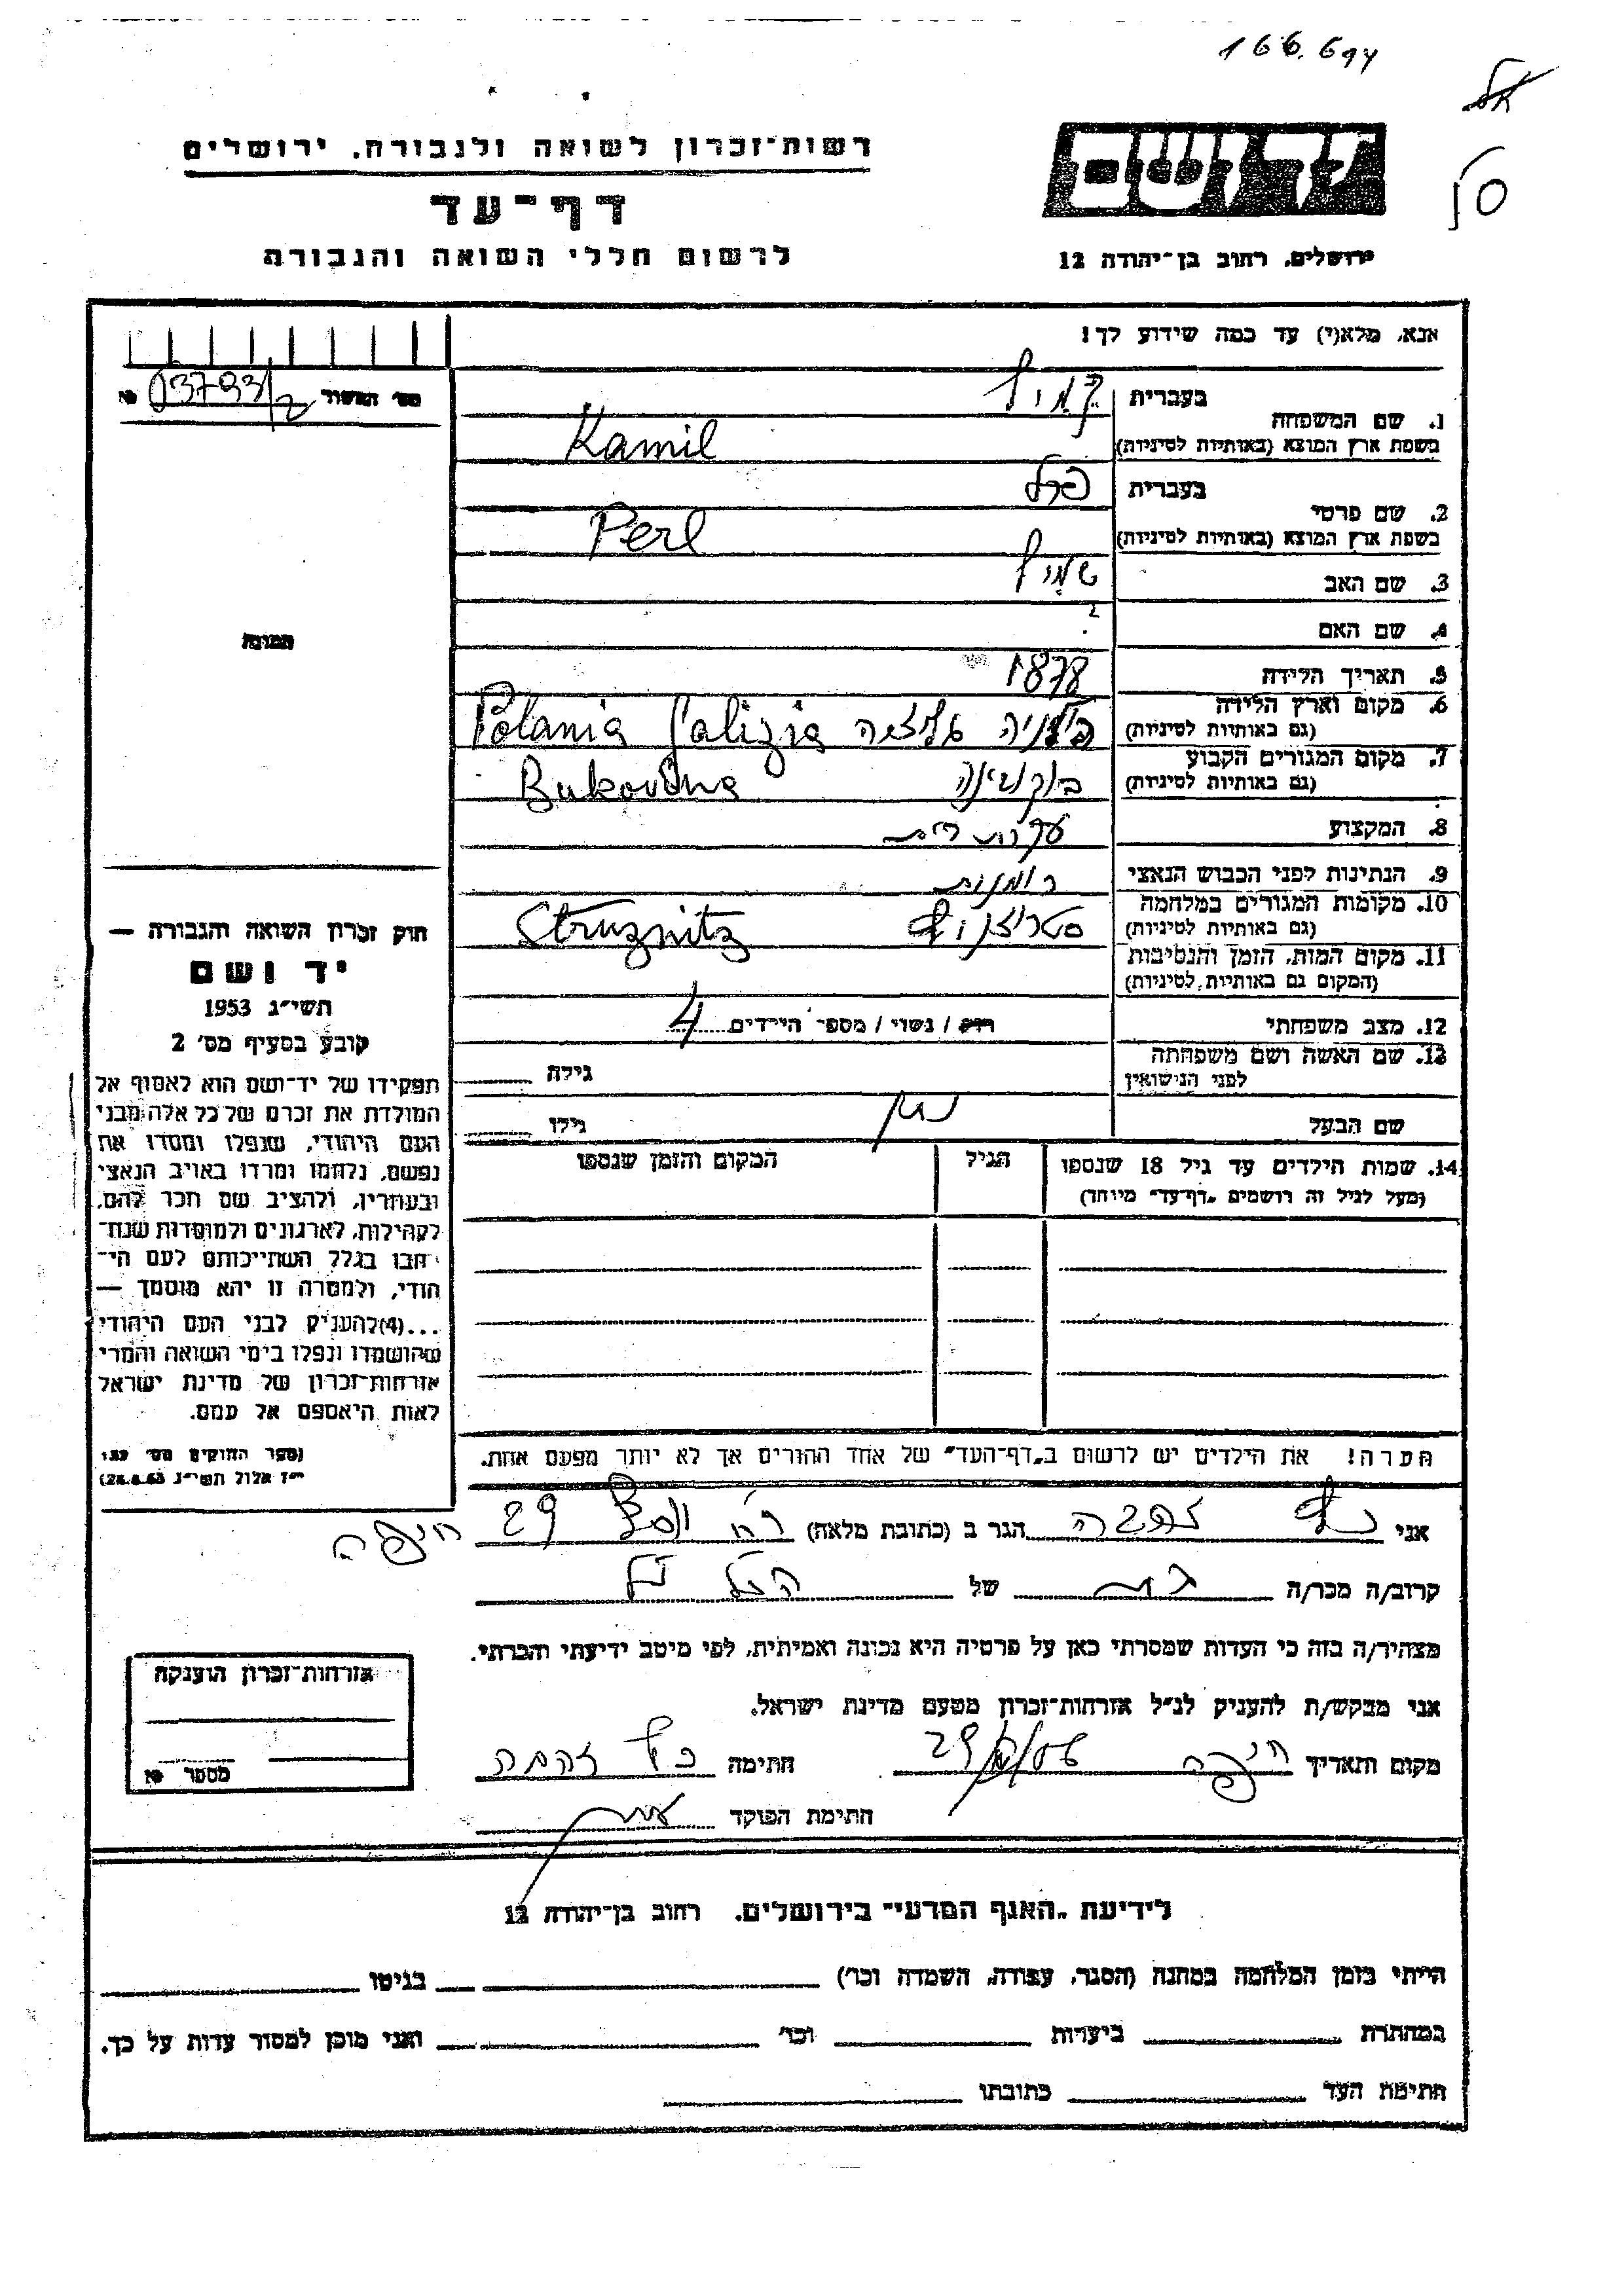 166.694
רשות־זכרון לשואה ולגבורה, ירושלים
דף־עד
לרשום חללי השואה והגבורה
ירושלים, רחוב בן־יהודה 12
אנא, מלא(י) עד כמה שידוע לך!
מס' האשור 03793/2 №
תמונה
1. שם המשפחה
בעברית קמיל
בשפת ארץ המוצא (באותיות לטיניות) Kamil
2. שם פרטי
בעברית פרל
בשפת ארץ המוצא (באותיות לטיניות) Perl
3. שם האב שמיל
4. שם האם ?
5. תאריך הלידה 1878
6. מקום וארץ הלידה
(גם באותיות לטיניות) פולניה גליציה Polania Galizia
7. מקום המגורים הקבוע
(גם באותיות לטיניות) בוקובינה Bukovina
8. המקצוע עקרת בית
9. הנתינות לפני הכבוש הנאצי רומנית
10. מקומות המגורים במלחמה
(גם באותיות לטיניות) Struznitz
11. מקום המות, הזמן והנסיבות
(המקום גם באותיות לטיניות)
12. מצב משפחתי רוק / נשוי / מספר הילדים 4
13. שם האשה ושם משפחתה
לפני הנישואין גילה
שם הבעל גילו
14. שמות הילדים עד גיל 18 שנספו
(מעל לגיל זה רושמים "דף־עד" מיוחד)
הגיל
המקום והזמן שנספו
הערה! את הילדים יש לרשום ב"דף־העד" של אחד ההורים אך לא יותר מפעם אחת.
חוק זכרון השואה והגבורה —
יד ושם
תשי"ג 1953
קובע בסעיף מס' 2
תפקידו של יד־ושם הוא לאסוף אל
המולדת את זכרם של כל אלה מבני
העם היהודי, שנפלו ומסרו את
נפשם, נלחמו ומרדו באויב הנאצי
ובעוזריו, ולהציב שם וזכר להם,
לקהילות, לארגונים ולמוסדות שנח־
רבו בגלל השתייכותם לעם הי־
הודי, ולמטרה זו יהא מוסמך —
...(4)להעניק לבני העם היהודי
שהושמדו ונפלו בימי השואה והמרי
אזרחות־זכרון של מדינת ישראל
לאות היאספם אל עמם.
(ספר החוקים מס' 132,
י"ז אלול תשי"ג 28.8.53)
אני הגר ב (כתובת מלאה) 29 חיפה
קרוב/ה מכר/ה של
מצהיר/ה בזה כי העדות שמסרתי כאן על פרטיה היא נכונה ואמיתית, לפי מיטב ידיעתי והכרתי.
אני מבקש/ת להעניק לנ"ל אזרחות־זכרון מטעם מדינת ישראל.
מקום ותאריך חיפה חתימה
חתימת הפוקד
אזרחות־זכרון הוענקה
מספר №
לידיעת "האגף המדעי" בירושלים, רחוב בן־יהודה 12
הייתי בזמן המלחמה במחנה (הסגר, עבודה, השמדה וכו') בגיטו
במחתרת ביערות וכו' ואני מוכן למסור עדות על כך.
חתימת העד כתובתו